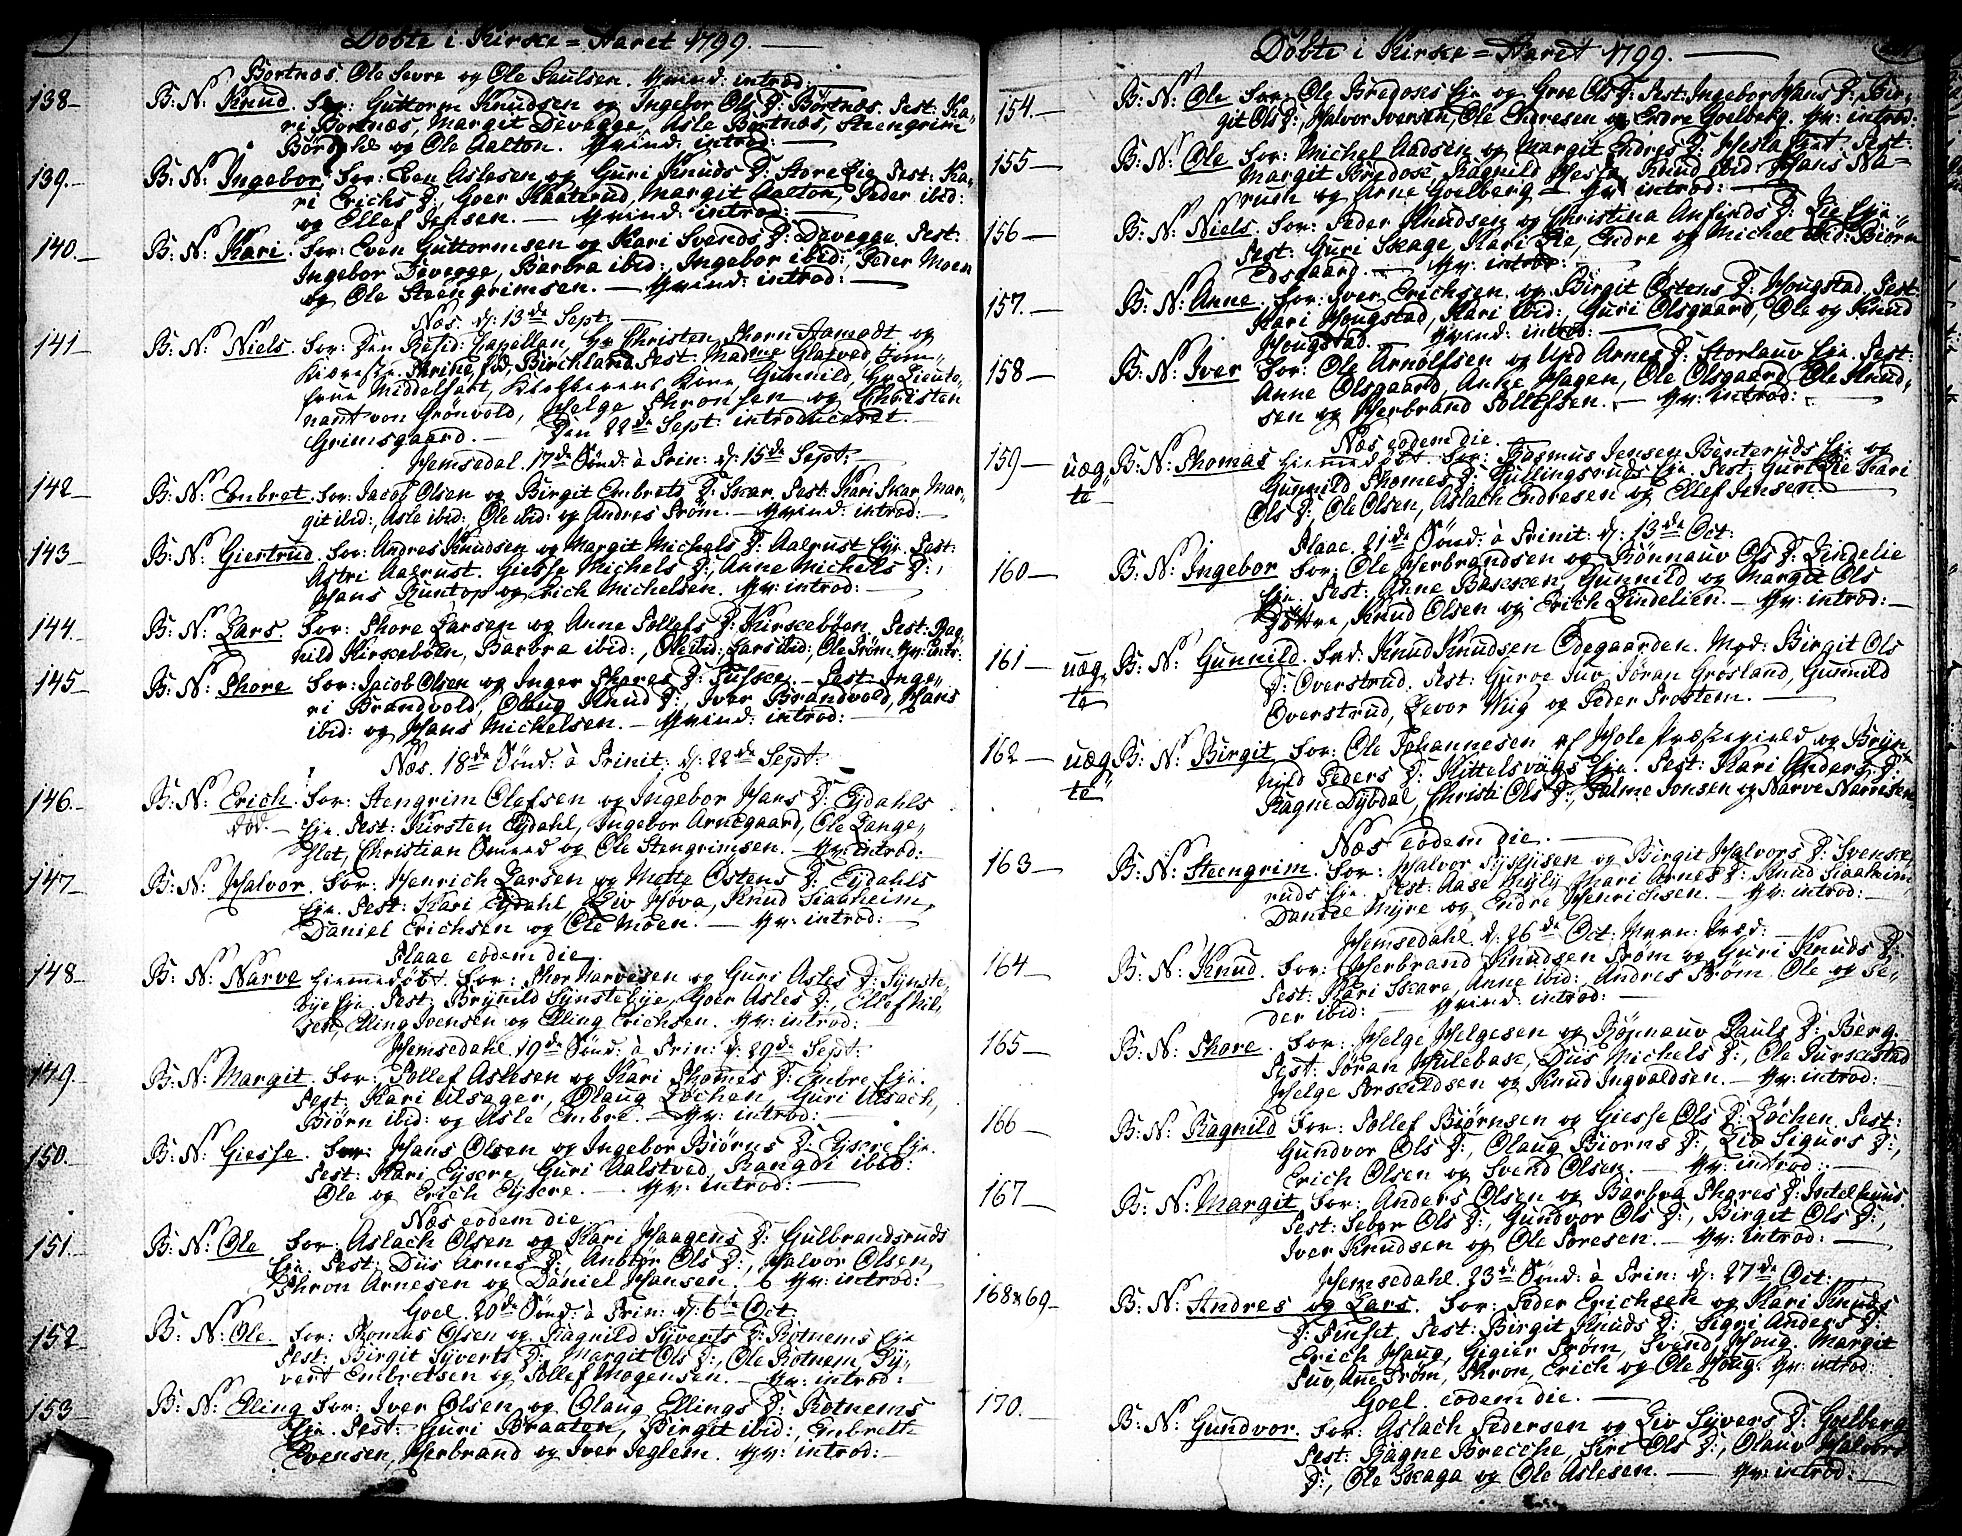 Döbte i Kirke=Aaret 1799.
Bortnæs. Ole Sevre og Ole Paulsen. Qvind: introd:
138 B: N: Knud. For: Guttorm Knudsen og Ingebor Ols D: Börtnæs. Test: Ka-
ri Bortnæs, Margit Devegge, Asle Bortnæs, Steengrim
og Ole Aalton. Qvind: introd:
139. B: N: Ingebor. For: Even Aslesen og Guri Knuds D: Store Eie Test: Ka-
ri Erichs D:, Goer Klaterud, Margit Aalton, Peder ibid:
og Ellef Jensen. Qvind: introd:
140. B: N: Kari. For: Even Guttormsen og Kari Svends D: Devegge. Test:
Ingebor Devegge, Barbra ibid:, Ingebor ibid:, Peder Moen
og Ole Steengrimsen. Qvind: introd:
Næs. d: 13de Sept:
141 B: N: Niels. For: Den Resid: Capellan, Hr Christen Thorn Aamodt og
Kiereste Thrine, föd Birchland. Test: Madme Glatved, Jom-
frue Middelfart, Klokkerens Kone, Gunnild, Hr Lieute-
nant von Grönvold, Helge Thronsen og Christen
Grimsgaard. Den 22de Sept: introduceret.
Hemsedal. 17de Sönd: à Trin: d: 15de Sept:
142 B: N: Embret. For: Jacob Olsen og Birgit Embrets D: Skar. Test: Kari Skar, Mar-
git ibid:, Asle ibid:, Ole ibid: og Andres Tröm. Qvind: introd:
143 B: N: Giertrud. For: Andres Knudsen og Margit Michels D: Aalrust Eie. Test:
Astri Aalrust. Giesse Michels D:, Anne Michels D:,
Hans Runtop og Erich Michelsen. Qv: introd:
144. B: N: Lars. For: Thore Larsen og Anne Tollefs D: Kirkeböen. Test: Rag-
nild Kirkeböen, Barbra ibid:, Ole ibid:, Lars ibid:, Ole Tröm. Qv: intr:
145 B: N: Thore For: Jacob Olsen og Inger Thores D: Test: Inge-
ri Brandvold, Olaug Knud D:, Iver Brandvold, Hans
ibid: og Hans Michelsen. Qvind: introd:
Næs. 18de Sönd: à Trinit: d: 22de Sept:
146. B: N: Erich. For: Stengrim Olefsen og Ingebor Hans D: Eydahls
död. Eje. Test: Kirsten Eydahl, Ingebor Arnegaard, Ole Lange-
slet, Christian og Ole Stengrimsen. Qv: introd:
147 B: N: Halvor. For: Henrich Larsen og Mette Östens D: Eydahls
Eje. Test: Kari Eydahl, Liv Hova, Knud Siaaheim,
Daniel Erichsen og Ole Moen. Qv: introd:
Flaae eodem die.
148. B: N: Narve hiemmedöbt. For: Thor Narvesen og Guri Asles D: Synste-
bye Eje. Test: Brynild Synstebye, Goer Asles D:, Ellef Nil-
sen, Elling Joensen og Elling Erichsen. Qv: introd:
Hemsedahl. 19de Sönd: à Trin: d: 29de Sept:
149. B: N: Margit. For: Tollef Aslesen og Kari Thomes D: Embre Eje.
Test: Kari Ulsager, Olaug Löchen, Guri Ulsach,
Biörn ibid: og Asle Embre. Qv: introd:
150. B: N: Giesse. For: Hans Olsen og Ingebor Biörns D: Eikre Eje.
Test: Kari Eikre, Guri Aalstved, Rangdi ibid:
Ole og Erich Eikre. Qv: introd:
Næs eodem die
151. B: N: Ole For: Aslach Olsen og Kari Haagens D: Gulbrandsruds
Eje. Test: Diis Arnes D:, Ambiör Ols D:, Halvor Olsen,
Thron Arnesen og Daniel Hansen. Qv: introd:
Goel. 20de Sönd: à Trin: d: 6te Oct:
152 B: N: Ole. For: Thomas Olsen og Ragnild Syverts D: Rotnems Eje
Test: Birgit Syverts D:, Margit Ols D:, Ole Rotnem, Sy-
vert Embretsen og Tollef Mogensen. Qv: introd:
153 B: N: Elling For: Iver Olsen og Olaug Ellings D: Rotnems
Eje. Test: Guri Braaten, Birgit ibid:, Embret
Evensen, Herbrand og Iver Jeglem. Qv: introd:
Döbte i Kirke=Aaret 1799.
154. B: N: Ole For: Ole Bredoses Eje og Groe Ols D: Test: Ingebor Hans D:, Bir-
git Ols D:, Halvor Iversen, Ole Endresen og Endre Goelberg. Qv: introd:
155 B: N: Ole For: Michel Aadsen og Margit Endres D: Hesla Test:
Margit Bredose, Ragnild Hesla, Knud ibid: Hans Na-
rum og Arne Goelberg. Qv: introd:
156 B: N: Niels. For: Peder Knudsen og Christina Anfinds D: Lie Eje.
Test: Guri Skage, Kari Lie, Endre og Michel ibid: Biörn
Edsgaard. Qv: introd:
157. B: N: Anne. For: Iver Erichsen og Birgit Östens D: Hougstad. Test:
Kari Hougstad, Kari ibid:, Guri Olsgaard, Ole og Knud
Hougstad. Qvind: introd:
158 B: N: Iver For: Ole Arnolfsen og Arnes D: Storlauv Eje. Test:
Anne Olsgaard, Anne Hagen, Ole Olsgaard, Ole Knud-
sen og Herbrand Tollefsen. Qv: introd:
Næs eodem die.
159 uæg- B: N: Thomas hiemmedöbt. For: Rasmus Jensen Benteruds Eje og
te Gunnild Thomes D: Eje. Test: Guri Lie Kari
Ols D:, Ole Olsen, Aslach Endresen og Ellef Jensen.
Flaae. 21de Sönd: à Trinit: d: 13de Oct:
160 B: N: Ingebor For: Ole Herbrandsen og Börnauv Ols D: Lindelie
Eje. Test: Anne Bakken, Gunnild og Margit Ols
Döttre, Knud Olsen og Erich Lindelien. Qv: introd:
161 uæg- B: N: Gunnild. Fad: Knud Knudsen Ödegaarden. Mod: Birgit Ols
te D: Överstrud. Test: Gurve Juv, Jöran Grösland, Gunnild
Överstrud, Levor Wiig og Peder Trostem.
162 uæg- B: N: Birgit For: Ole Johannesen af Hole Præstegield og Bryn-
te hild Peders D: Kittelsviigs Eje. Test: Kari Anders D:
Ragne Dybdal, Christi Ols D:, Palme Jonsen og Narve Narvesen
Næs eodem die.
163 B: N: Steengrim. For: Halvor og Birgit Halvors D: Svenke-
ruds Eje. Test: Aase Myly Kari Arnes D: Knud Siaaheim
Daniel Myre og Endre Henrichsen. Qv: introd:
Hemsedahl. d: 26de Oct: Præd:
164 B: N: Knud. For: Herbrand Knudsen Tröm og Guri Knuds D:
Test: Kari Skare, Anne ibid: Andres Tröm Ole og Pe-
der ibid: Qvind: introd:
165 B: N: Thore. For: Helge Helgesen og Börnauv Pauls D: Berg.
Test: Jöran Hulebak, Diis Michels D:, Ole Turkestad
Helge Torkildsen og Knud Ingvaldsen. Qv: introd:
166 B: N: Ragnild For: Tollef Biörnsen og Giesse Ols D: Löchen. Test:
Gundvor Ols D:, Olaug Biorns D:, Liv Sigurs D:,
Erich Olsen og Svend Olsen. Qv: introd:
167 B: N: Margit For: Anders Olsen og Barbra Thores D: Intelhuus.
Test: Sebor Ols D:, Gundvor Ols D:, Birgit Ols D:,
Iver Knudsen og Ole Toresen. Qv: introd:
Hemsedahl. 23de Sönd: à Trin: d: 27de Oct:
168 & 69 B: N: Andres og Lars. For: Peder Erichsen og Kari Knuds
D: Test: Birgit Knuds D:, Sigri Anders D:
Erich Haug, Tröm, Svend Houg. Margit
Juv, Ane Tröm, Thron, Erich og Ole Houg. Qv: introd:
Goel. eodem die.
170. B: N: Gundvor. For: Aslach Pedersen og Liv Syvers D: Golberg
Test: Ragne Brecche, Siri Ols D:, Olauv Halvors
D:, Ole Skaga og Ole Aslesen. Qv: introd: